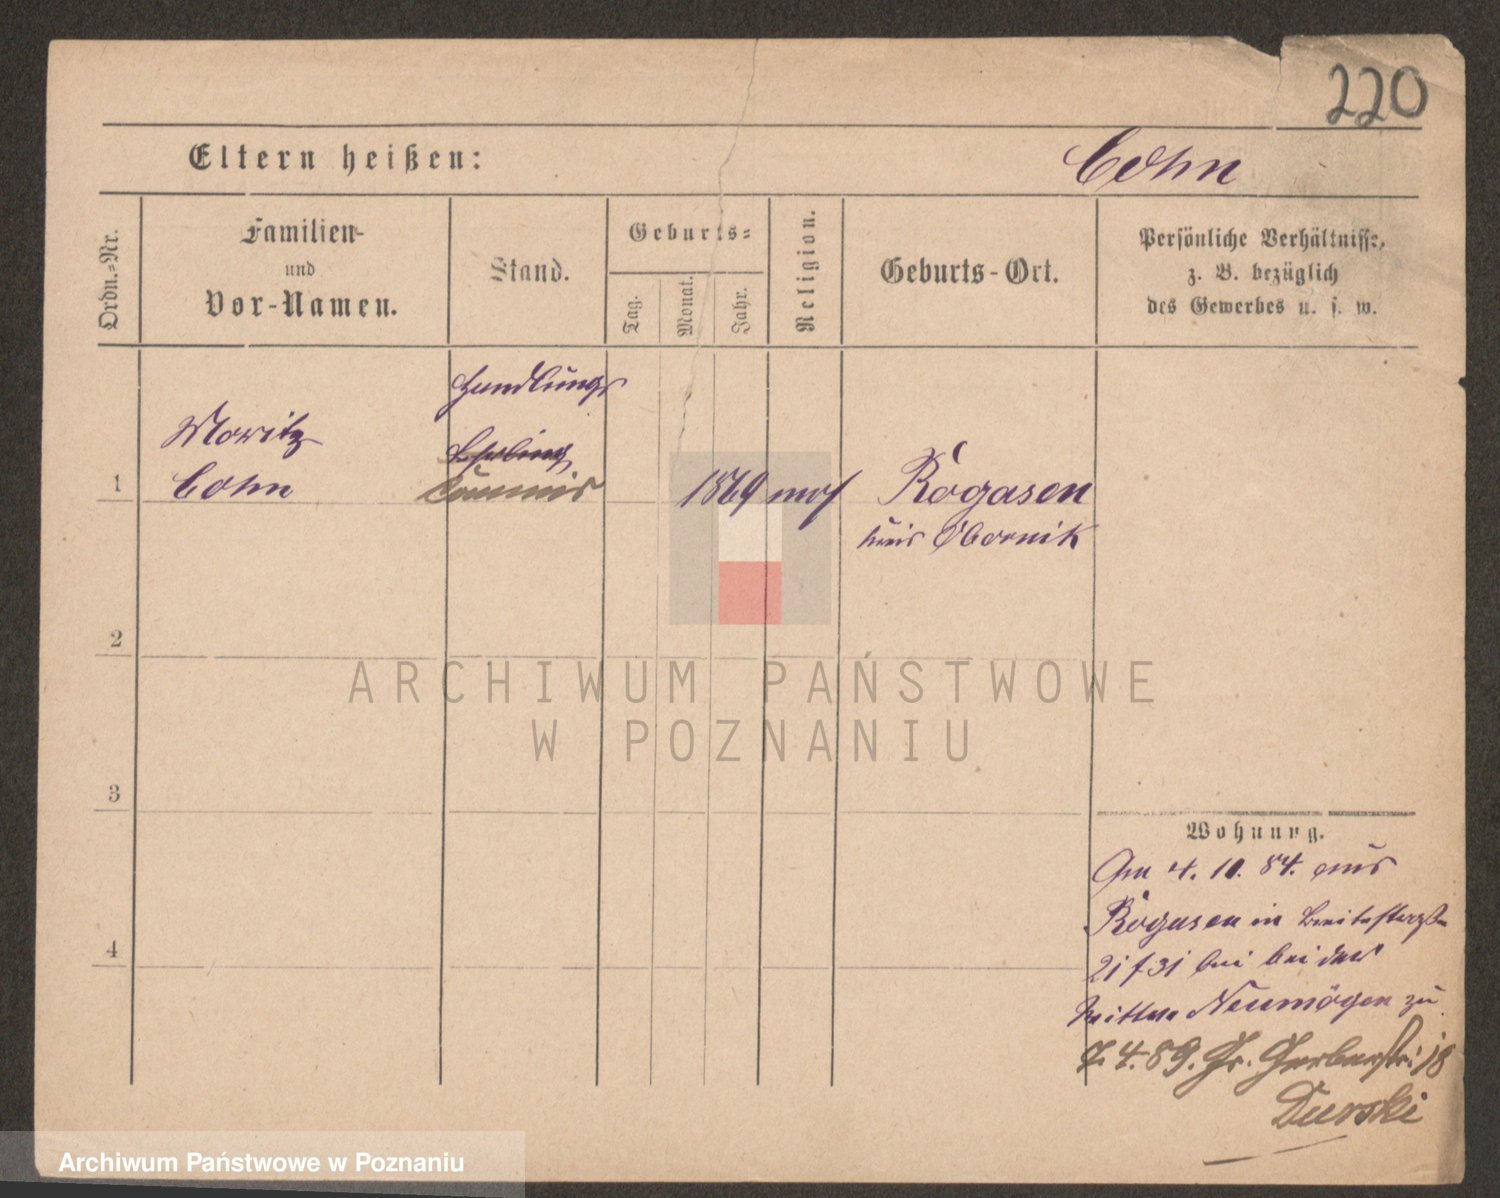 220
Eltern heißen:
Cohn
Ordn.-Nr.
Familien-
und
Vor-Namen.
Stand.
Geburts-
Tag.
Monat.
Jahr.
Religion.
Geburts-Ort.
Persönliche Verhältnisse,
z. B. bezüglich
des Gewerbes u. s. w.
Handlungs
Moritz
Lehrling
1 Cohn Commis 1869 mos Rogasen
Kreis Obornik
2
3
4
Wohnung.
Am 4. 10. 84. aus
Rogasen in Breitestraße
21 bei bei der
Wittwe Neumögen zu
7.4.89. Gr. Gerberstr. 18
Durski
ARCHIWUM PAŃSTWOWE
W POZNANIU
Archiwum Państwowe w Poznaniu